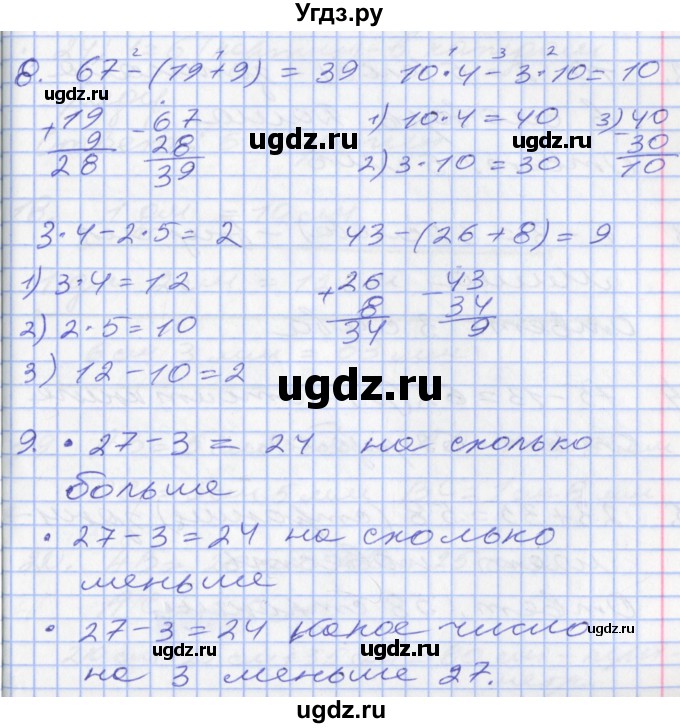 Угдз.ру
8. 67 - (19 + 9) = 39   10 · 4 - 3 · 10 = 10
2 1   1 3 2
ugdz.ru
+ 19   - 67   1) 10 · 4 = 40   3) - 40
9   28   ugdz.ru   30
28   39   2) 3 · 10 = 30   10
ugdz.ru
3 · 4 - 2 · 5 = 2   43 - (26 + 8) = 9
1) 3 · 4 = 12   + 26   - 43
2) 2 · 5 = 10   8   34
34   9
3) 12 - 10 = 2
ugdz.ru
9. · 27 - 3 = 24 на сколько
больше
ugdz.ru
· 27 - 3 = 24 на сколько
меньше
· 27 - 3 = 24 какое число
ugdz.ru
ugdz.ru
на 3 меньше 27.
ugdz.ru
ugdz.ru